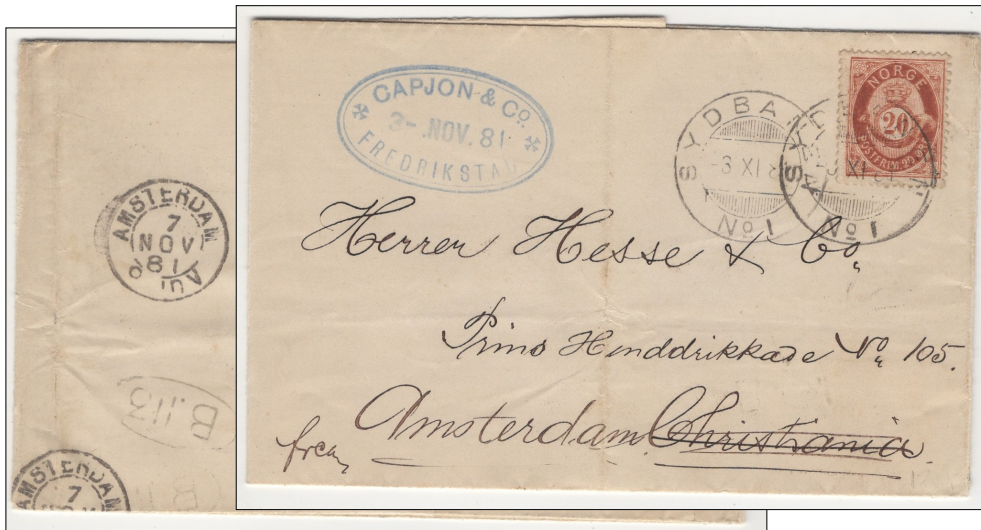 AMSTERDAM
7
NOV
81
B.113
AMSTERDAM
7
CAPJON & Co.
3-.NOV.81
FREDRIKSTAD
SYDBA
-3 XI 8
No 1
-3 XI 81
No 1
NORGE
20
POSTFRIM. 20 ØRE
Herrer Hesse & Co.
Prins Henddrikkade No. 105.
Amsterdam Christiania